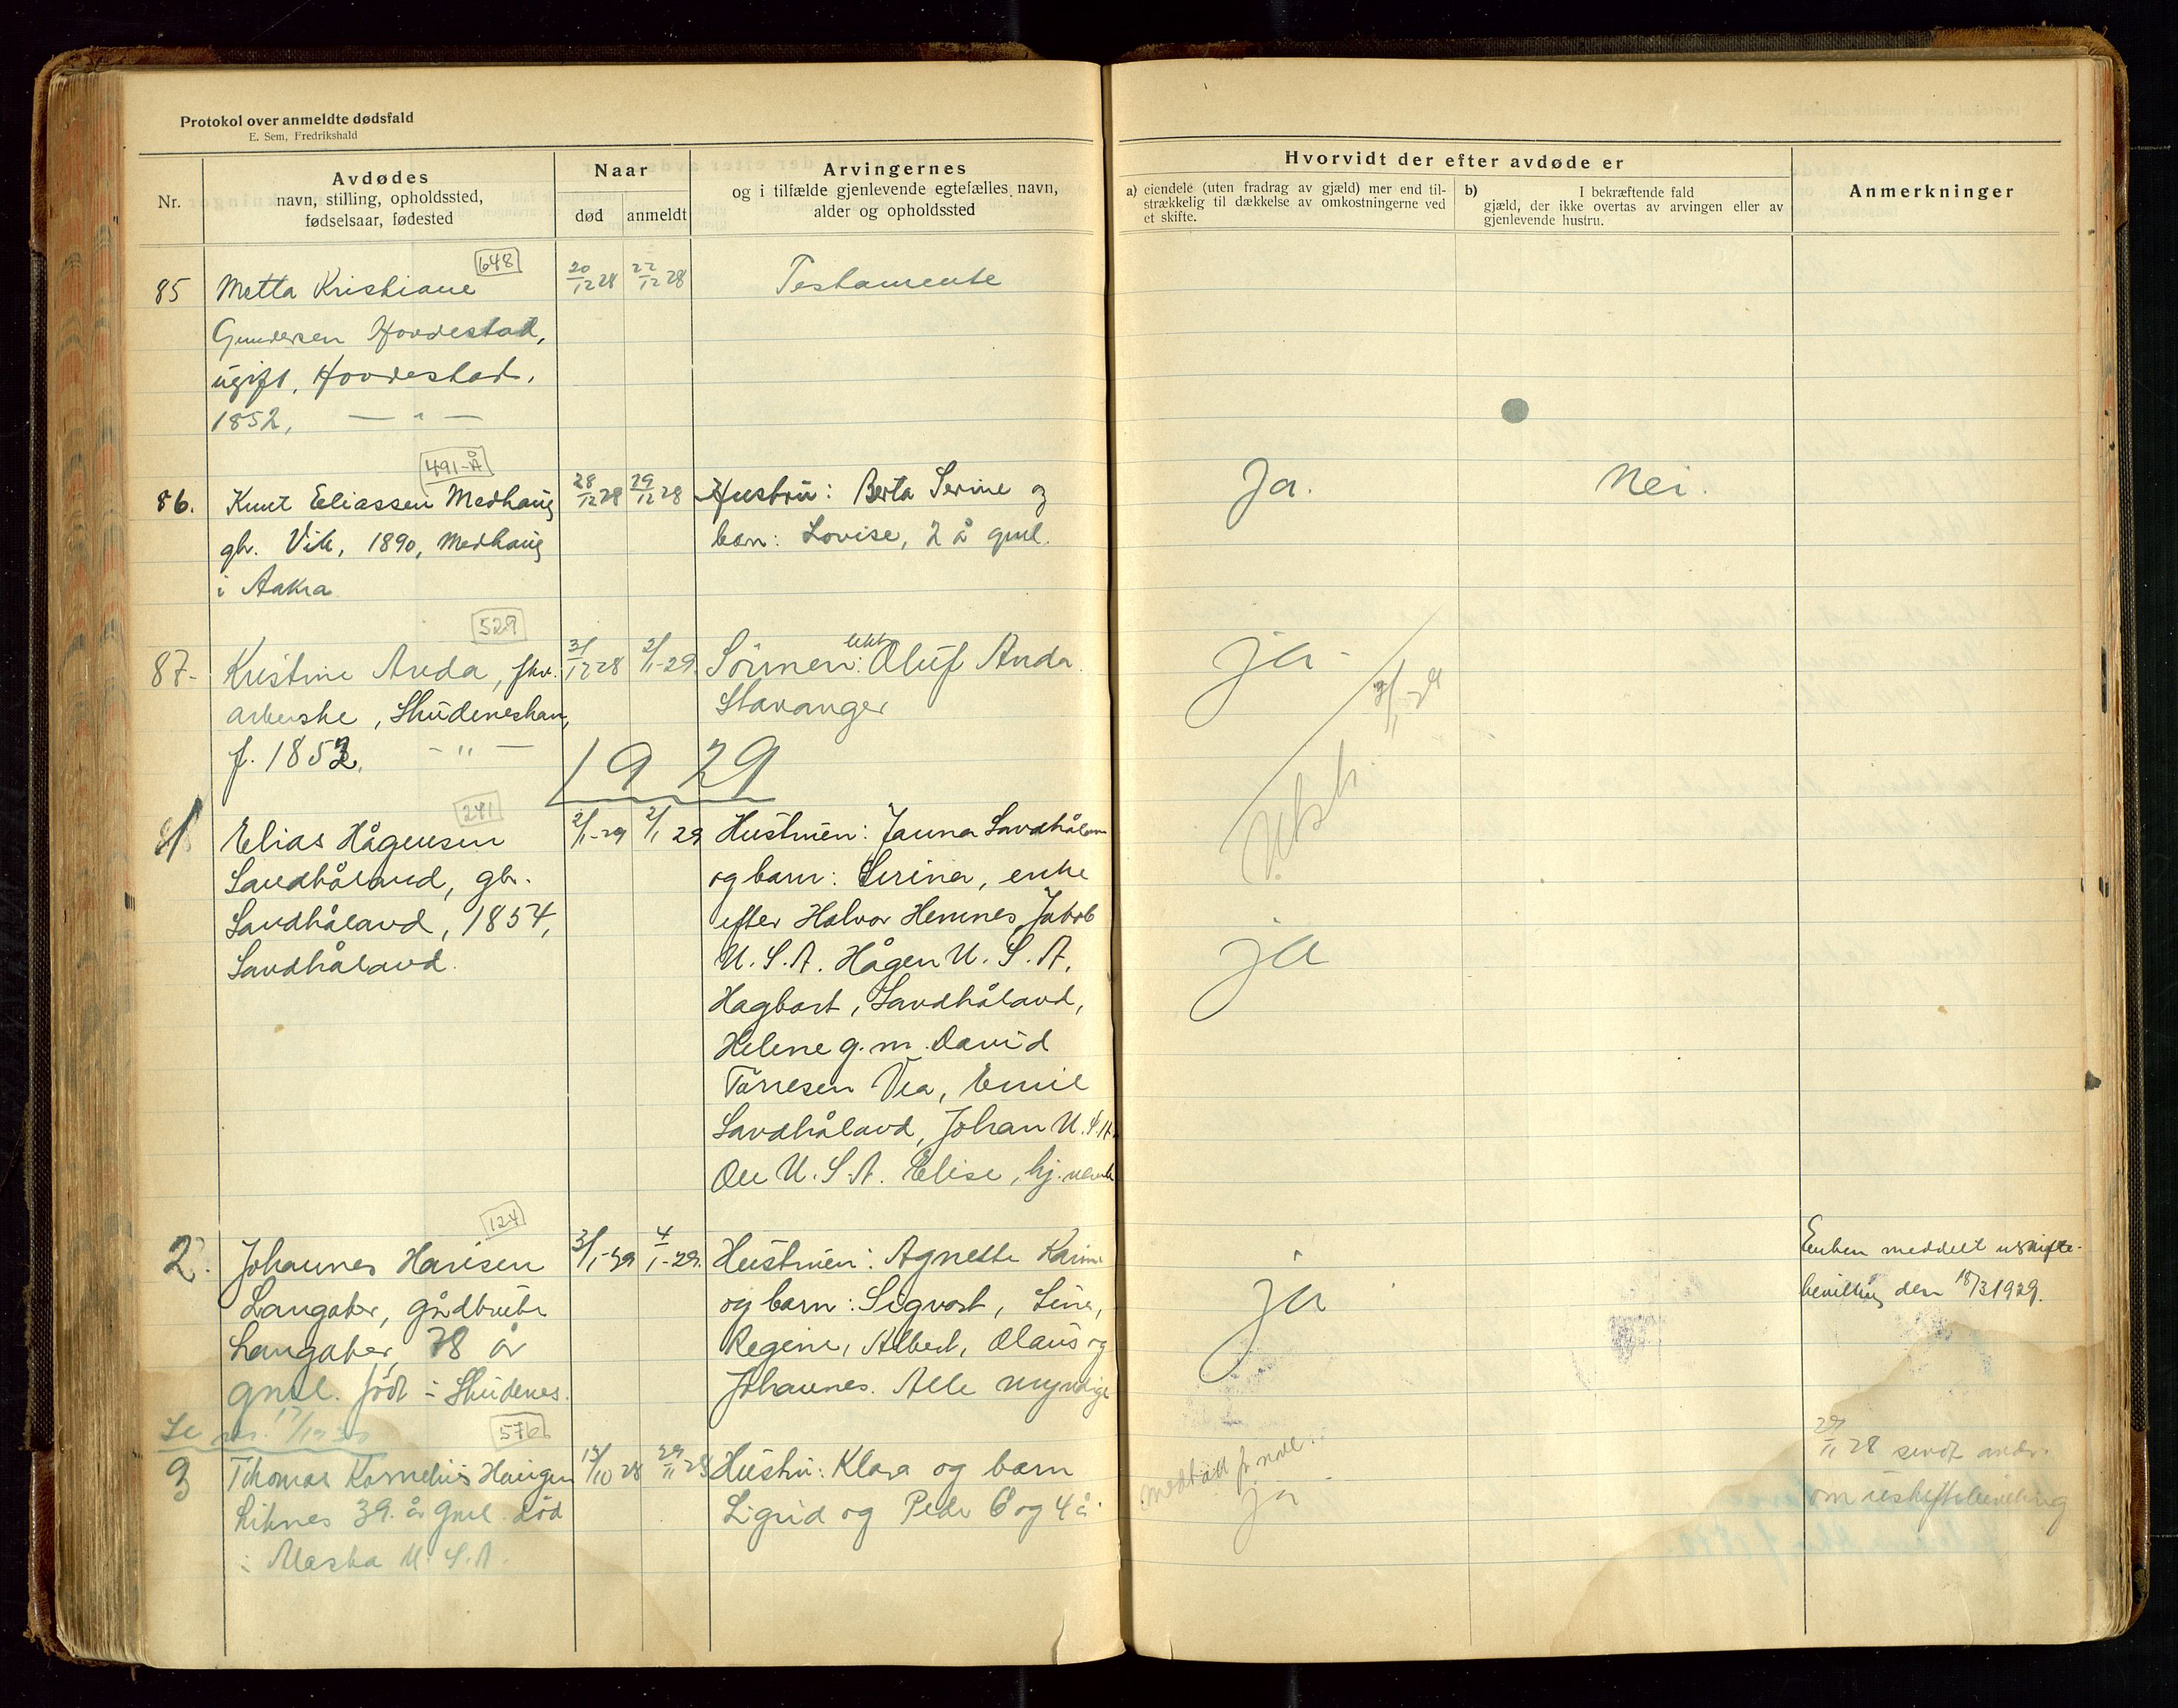 Protokol over anmeldte dødsfald
E. Sem, Fredrikshald
Nr.
Avdødes
navn, stilling, opholdssted,
fødselsaar, fødested
Naar
død
anmeldt
Arvingernes
og i tilfælde gjenlevende egtefælles navn,
alder og opholdssted
Hvorvidt der efter avdøde er
a) eiendele (uten fradrag av gjæld) mer end til-
strækkelig til dækkelse av omkostningerne ved
et skifte.
b) I bekræftende fald
gjæld, der ikke overtas av arvingen eller av
gjenlevende hustru.
Anmerkninger
648
85 Metta Kristiane
Gundersen Hovdestad,
ugift, Hovdestad,
1852, — " —
20/12 28
22/12 28
Testamente
491-Å
86. Knut Eliassen Medhaug
gbr. Vik, 1890, Medhaug
i Aakra
28/12 28
29/12 28
Hustru: Berta Serine og
barn: Lovise, 2 å gml.
Ja.
Nei.
529
87. Kristine Anda, fhv.
arberske, Skudeneshavn,
f. 1852, - " -
31/12 28
2/1-29
Sönnen: Oluf Anda
Stavanger
ja-
1929
241
1 Elias Hågensen
Sandhåland, gbr.
Sandhåland, 1854,
Sandhåland.
2/1-29
2/1 29
Hustruen: Janna Sandhåland
og barn: Serina, enke
efter Halvor Hemnes, Jakob
U.S.A. Hågen U.S.A.
Hagbart, Sandhåland,
Helene g.m. David
Törresen Vea, Emil
Sandhåland, Johan U.S.A.
U.S.A. Elise, hj.
ja
124
2. Johannes Hansen
Langaker, gårdbruker
Langaker, 78 år
gml. födt i Skudenes.
3/1-29
4/1-29.
Hustruen: Agnethe Karine
og barn: Sigvart, Line,
Regine, Albert, Olaus og
Johannes. Alle myndige
ja
Enken meddelt uskifte-
bevilling den 18/3 1929.
576
3 Thomas Kornelius Haugen
Liknes 39. år gml. död
i Alaska U.S.A.
29/11 28
Hustru: Klara og barn
Sigrid og Peder 6 og 4 å
ja
29/11 28 sendt andr.
om uskiftebevilling